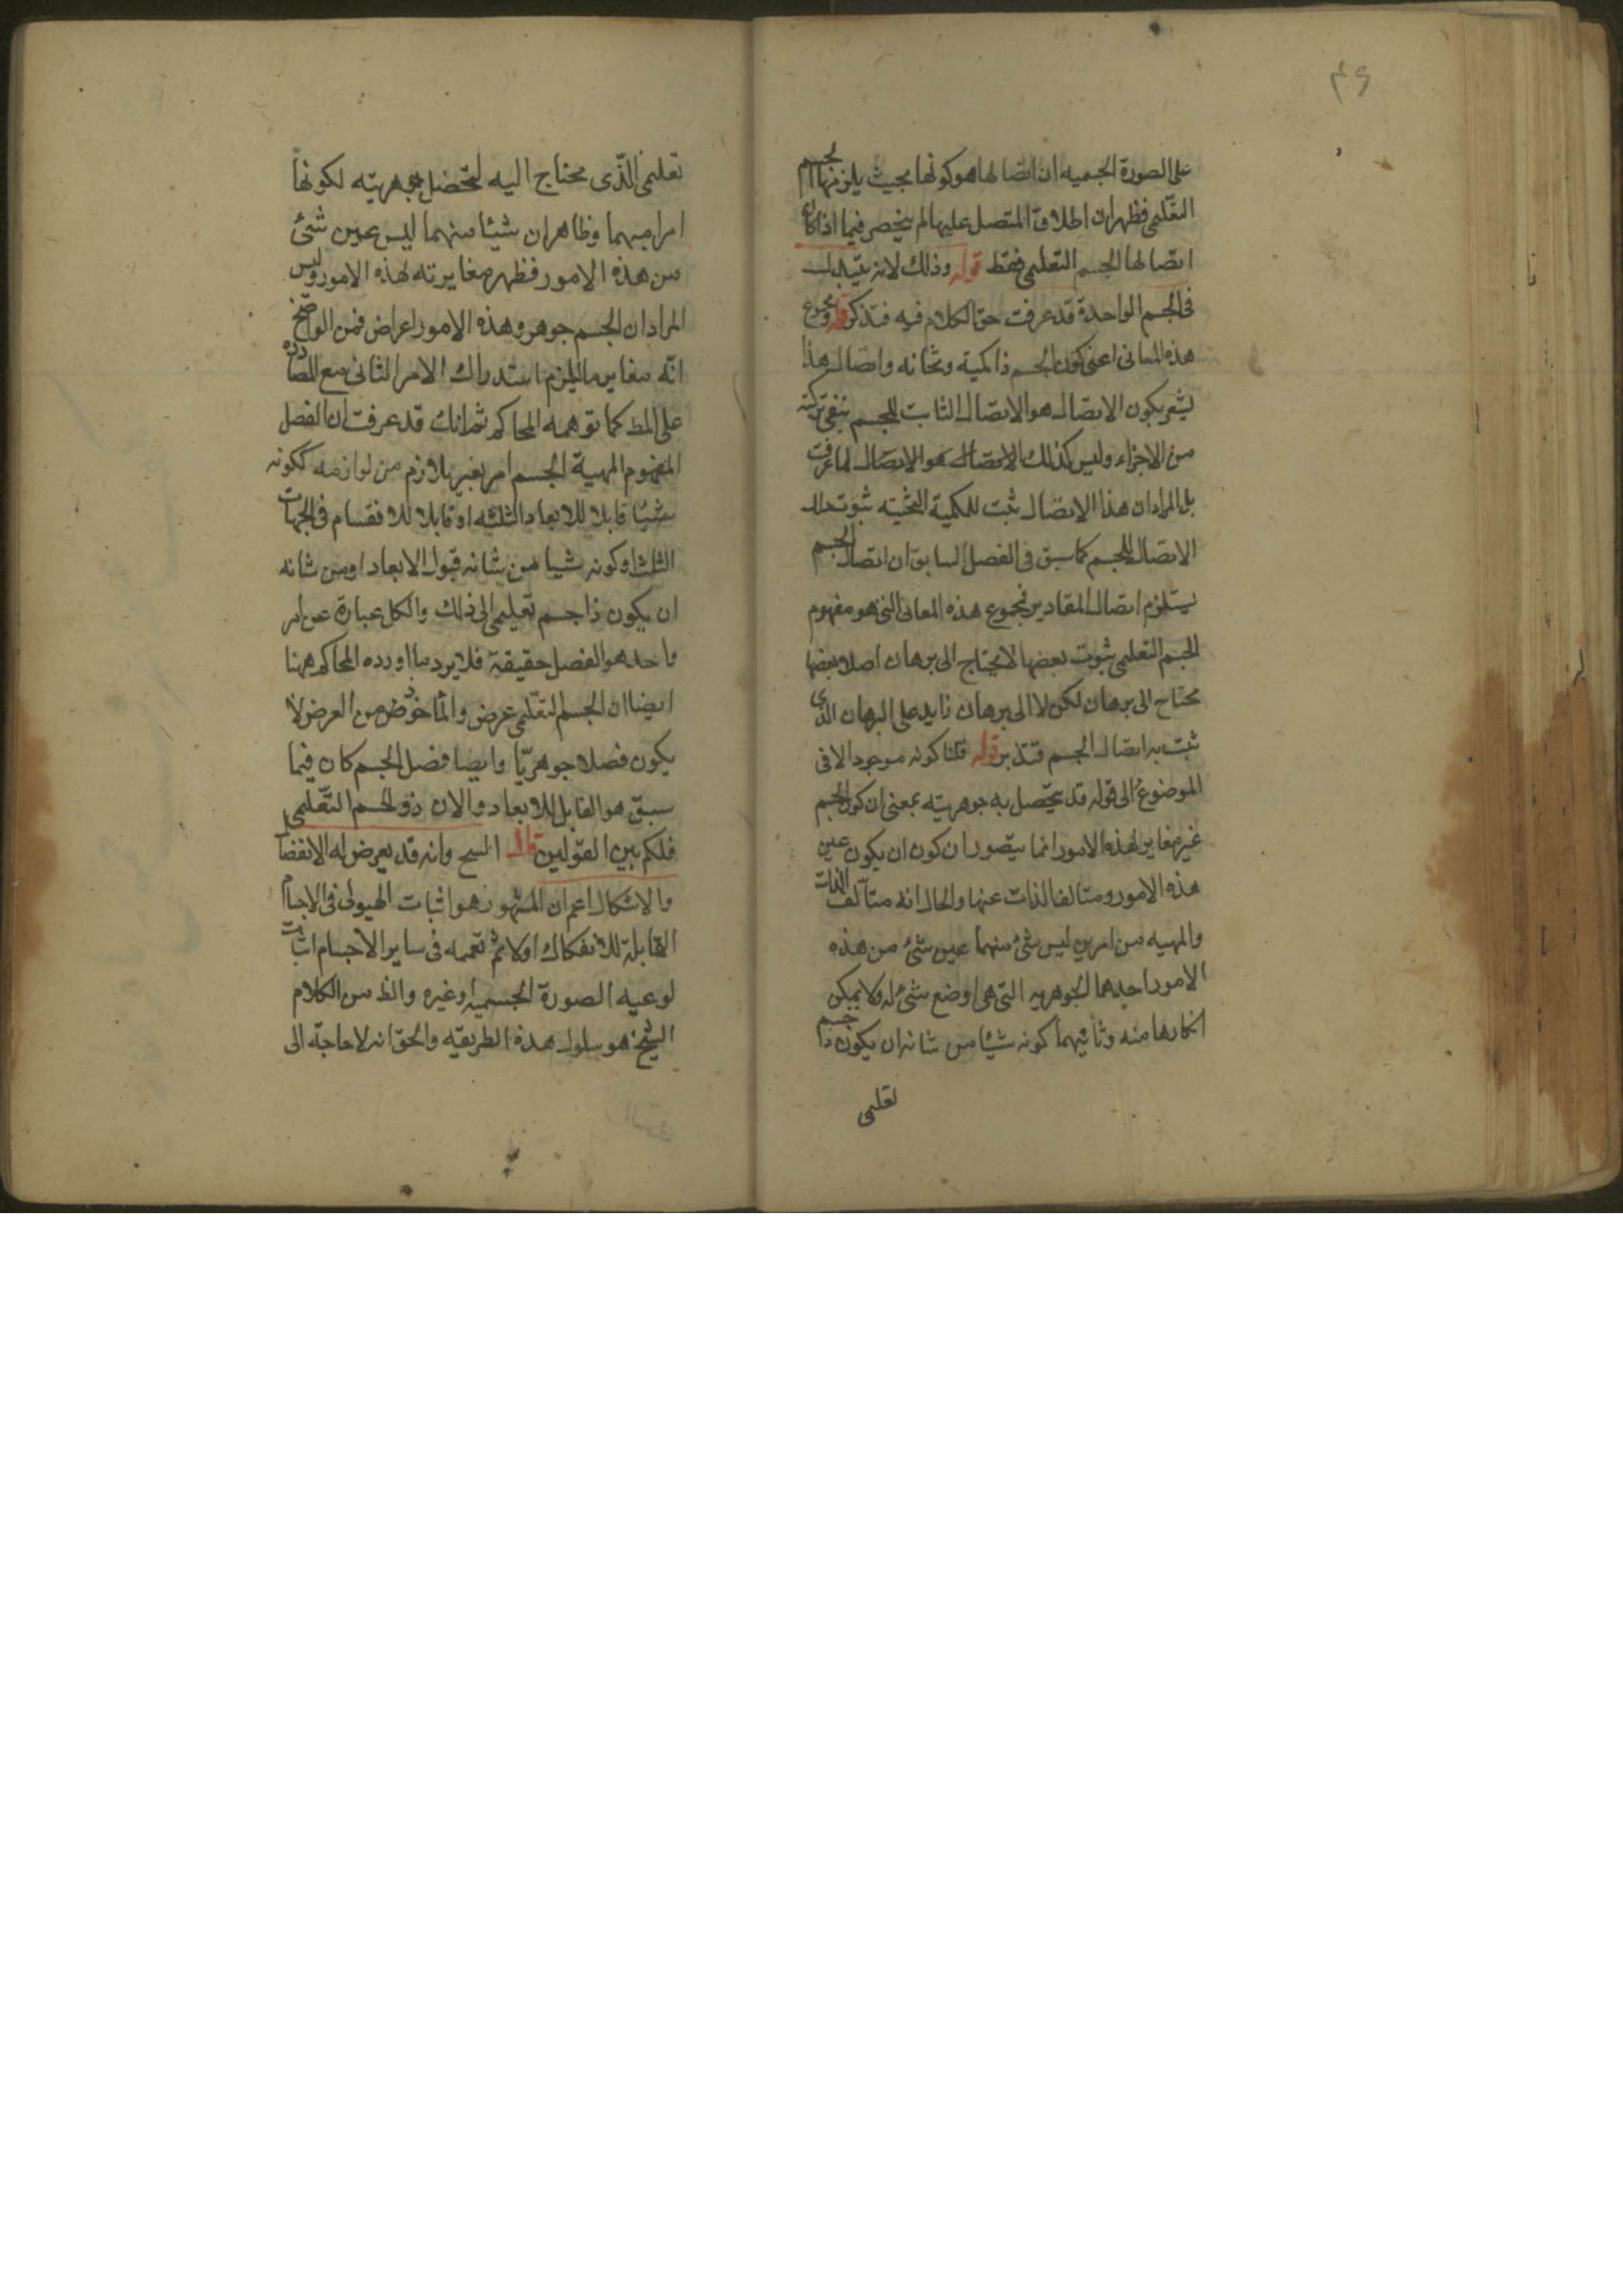 ٤٩
على الصورة الجسميه ان اتصالها هو كونها بحيث يلزمها الجسم
التعليمى فظهر ان اطلاق المتصل عليها لم ينحصر فيما اذا كان
اتصالها الجسم التعليمى فقط قوله وذلك لانه يتبدل
فى الجسم الواحدة قد عرفت حق الكلام فيه فتذكر قوله ومجموع
هذه المعانى اعنى كون الجسم ذا كمية وثخانه واتصال هذا
يشعر بكون الاتصال هو الاتصال الثابت للجسم بنفى تركبه
من الاجزاء وليس كذلك الاتصال هو الاتصال لما عرفت
بل المراد ان هذا الاتصال ثبت للكمية الثخنيه ثبوت ذلك
الاتصال للجسم كما سبق فى الفصل السابق ان اتصال الجسم
يستلزم اتصال المقادير فمجموع هذه المعانى التى هو مفهوم
الجسم التعليمى ثبوت بعضها لا يحتاج الى برهان اصلا وبعضها
محتاج الى برهان لكن لا الى برهان زايد على البرهان الذى
ثبت به اتصال الجسم فتدبر قوله قلنا كونه موجود الا فى
الموضوع الى قوله قد يتحصل به جوهريته بمعنى ان كون الجسم
غير مغاير لهذه الامور انما يتصور ان كون ان يكون عين
هذه الامور ومتالف الذات عنها والحال انه متآلف الذات
والمهيه من امرين ليس شئ منهما عين شئ من هذه
الامور احدهما الجوهريه التى هى اوضع شئ له ولا يمكن
انكارها منه وثانيهما كونه شيئا من شانه ان يكون ذا جسم
تعليمى
تعليمى الذى محتاج اليه لتحصل جوهريته لكونها
امرا مبهما وظاهر ان شيئا منهما ليس عين شئ
من هذه الامور فظهر مغايرته لهذه الامور وليس
المراد ان الجسم جوهر وهذه الامور اعراض فمن الواضح
انه مغاير ما يلزم استدراك الامر الثانى مع المصادره
على المط كما توهمه المحاكم ثم انك قد عرفت ان الفصل
المفهوم المهية الجسم امر يعبر بلازم من لوازمه ككونه
شيئا قابلا للابعاد الثلثه او قابلا للانقسام فى الجهات
الثلث او كونه شيا من شانه قبول الابعاد او من شانه
ان يكون ذا جسم تعليمى الى ذلك والكل عبارة عن امر
واحد هو الفصل حقيقة فلا يرد ما اورده المحاكم ههنا
ايضا ان الجسم التعليمى عرض والماخوذ من العرض لا
يكون فصلا جوهريا وايضا فصل الجسم كان فيما
سبق هو القابل للابعاد والان ذو الجسم التعليمى
فلكم بين القولين قال الشيخ وانه قد يعرض له الانفصال
والاشكال اعم ان المشهور هو اثبات الهيولى فى الاجسام
القابلة للانفكاك اولا ثم تعميمه فى ساير الاجسام اثبات
لوعيه الصورة الجسميه او غيره والظ من الكلام
الشيخ هو سلوك هذه الطريقيه والحق انه لا حاجة الى